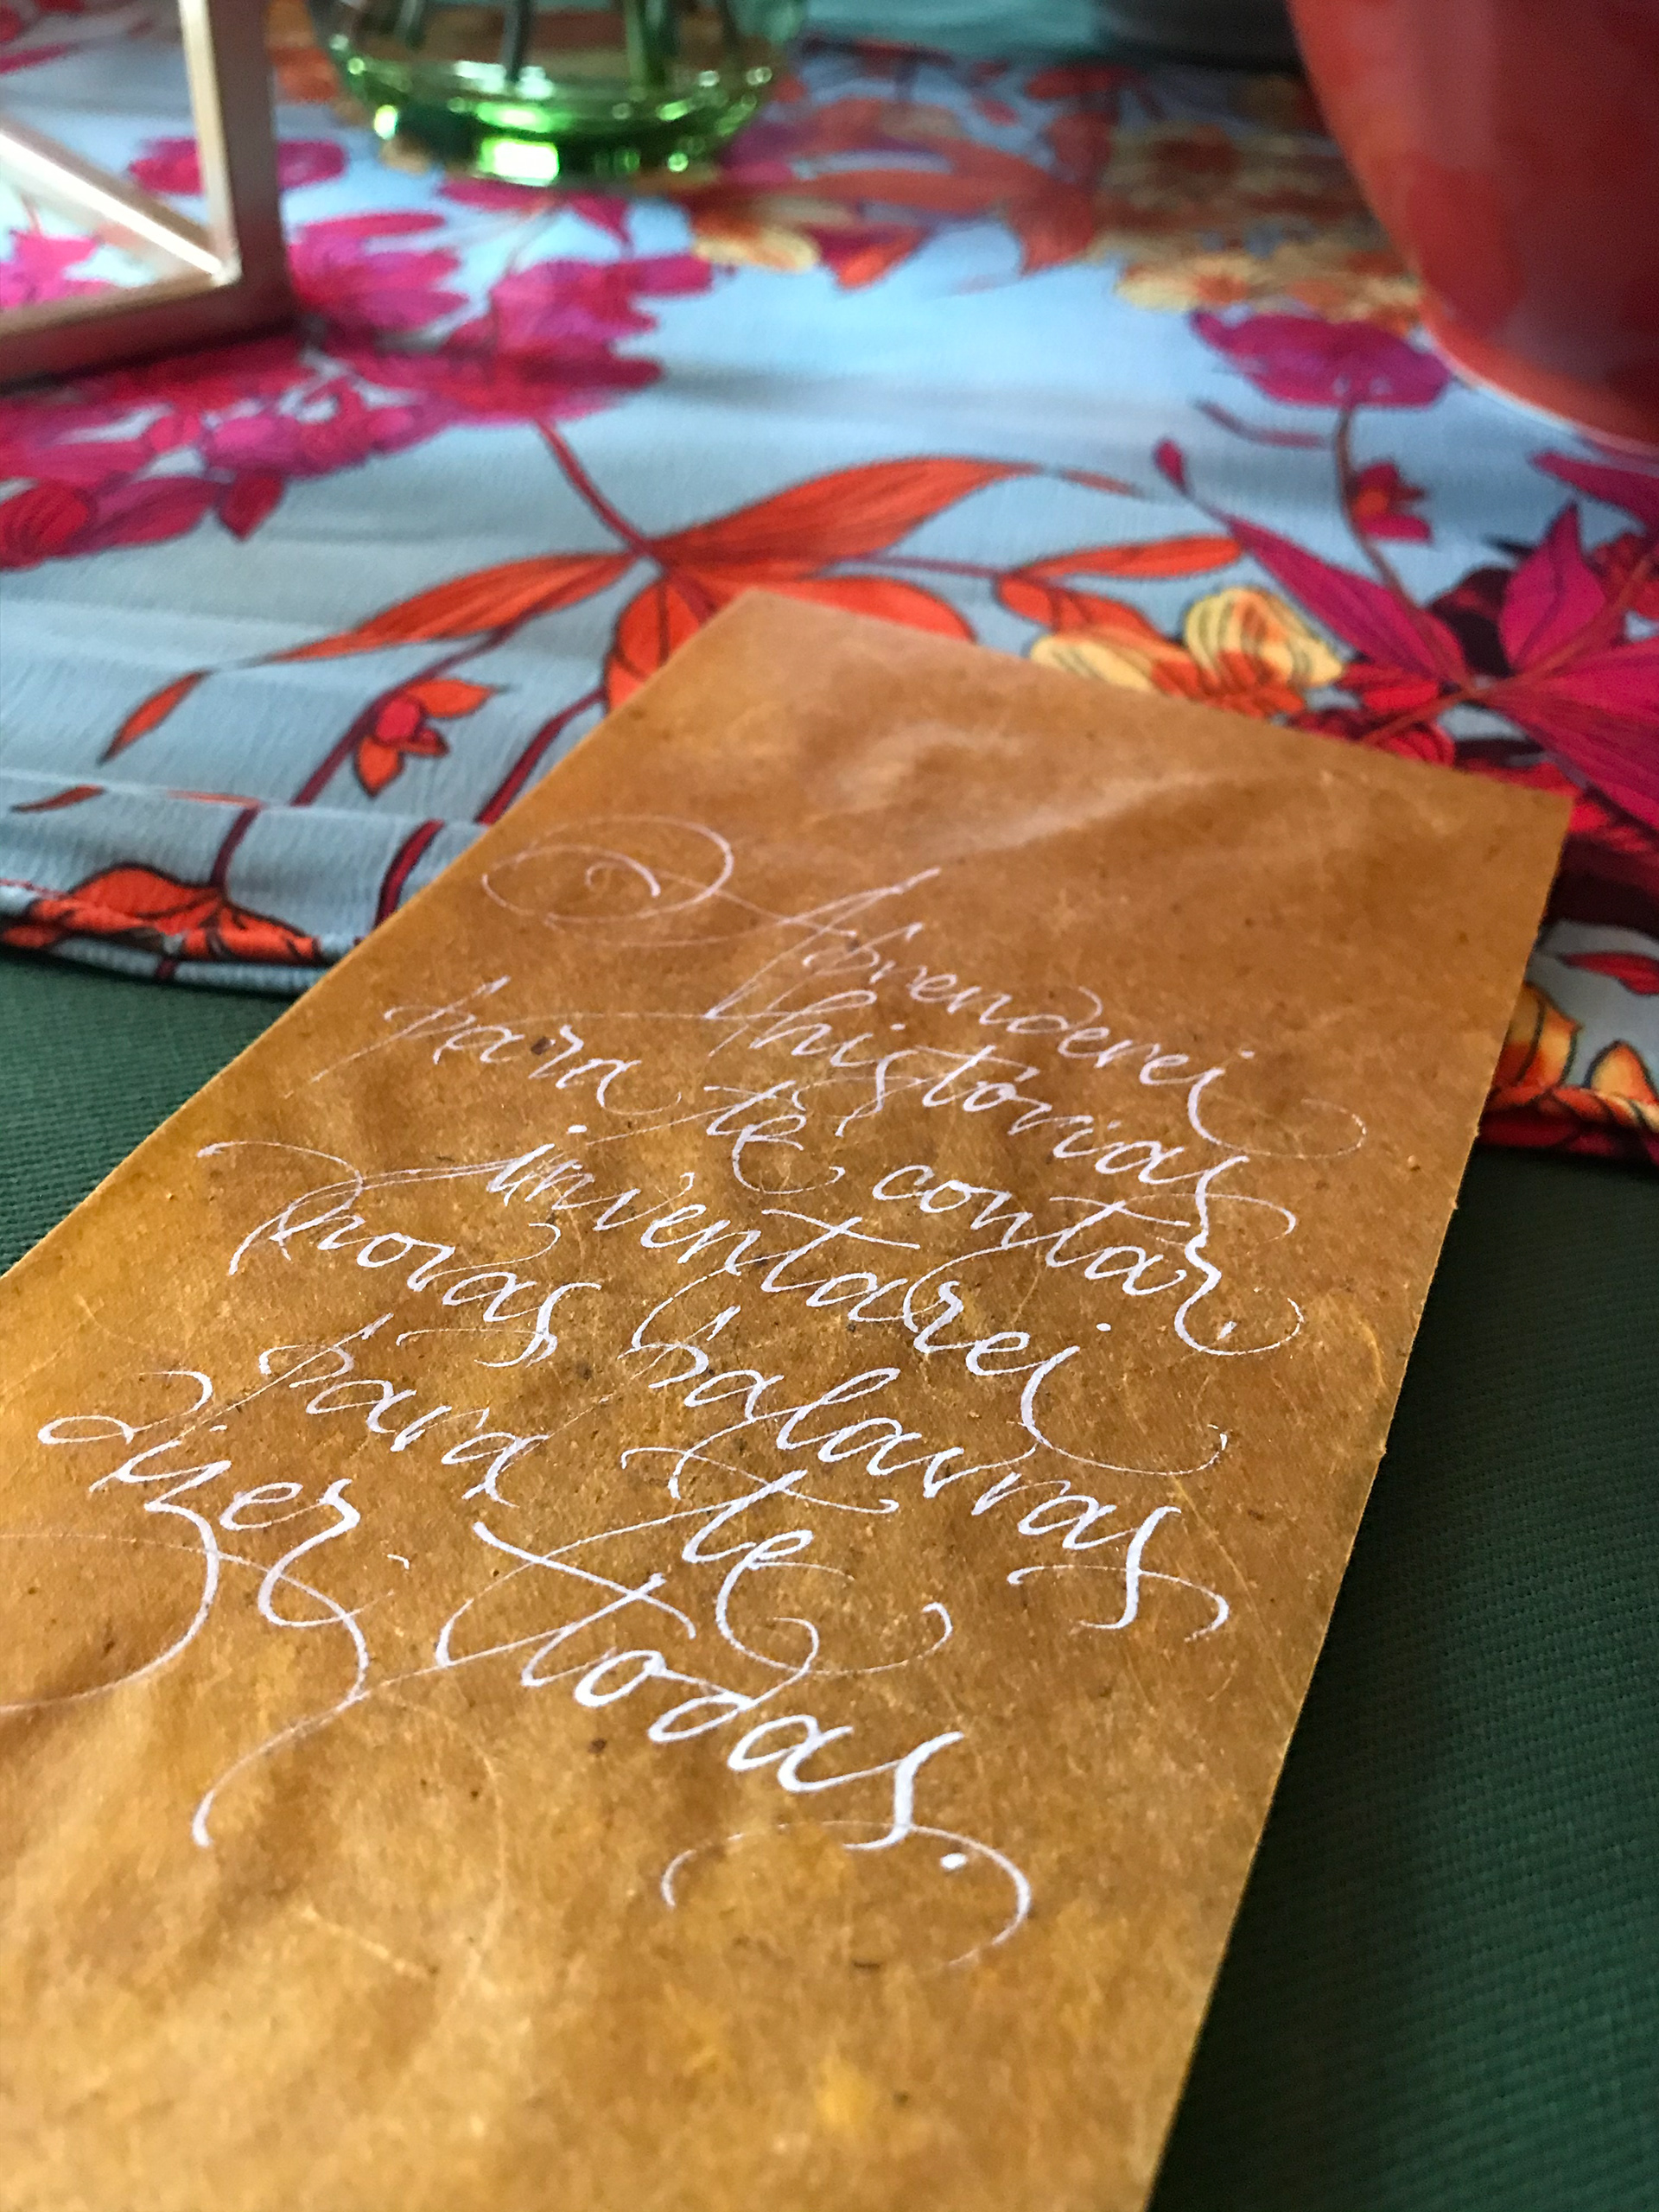 Aprenderei
histórias
para te contar
inventarei
novas palavras
para te
dizer todas.